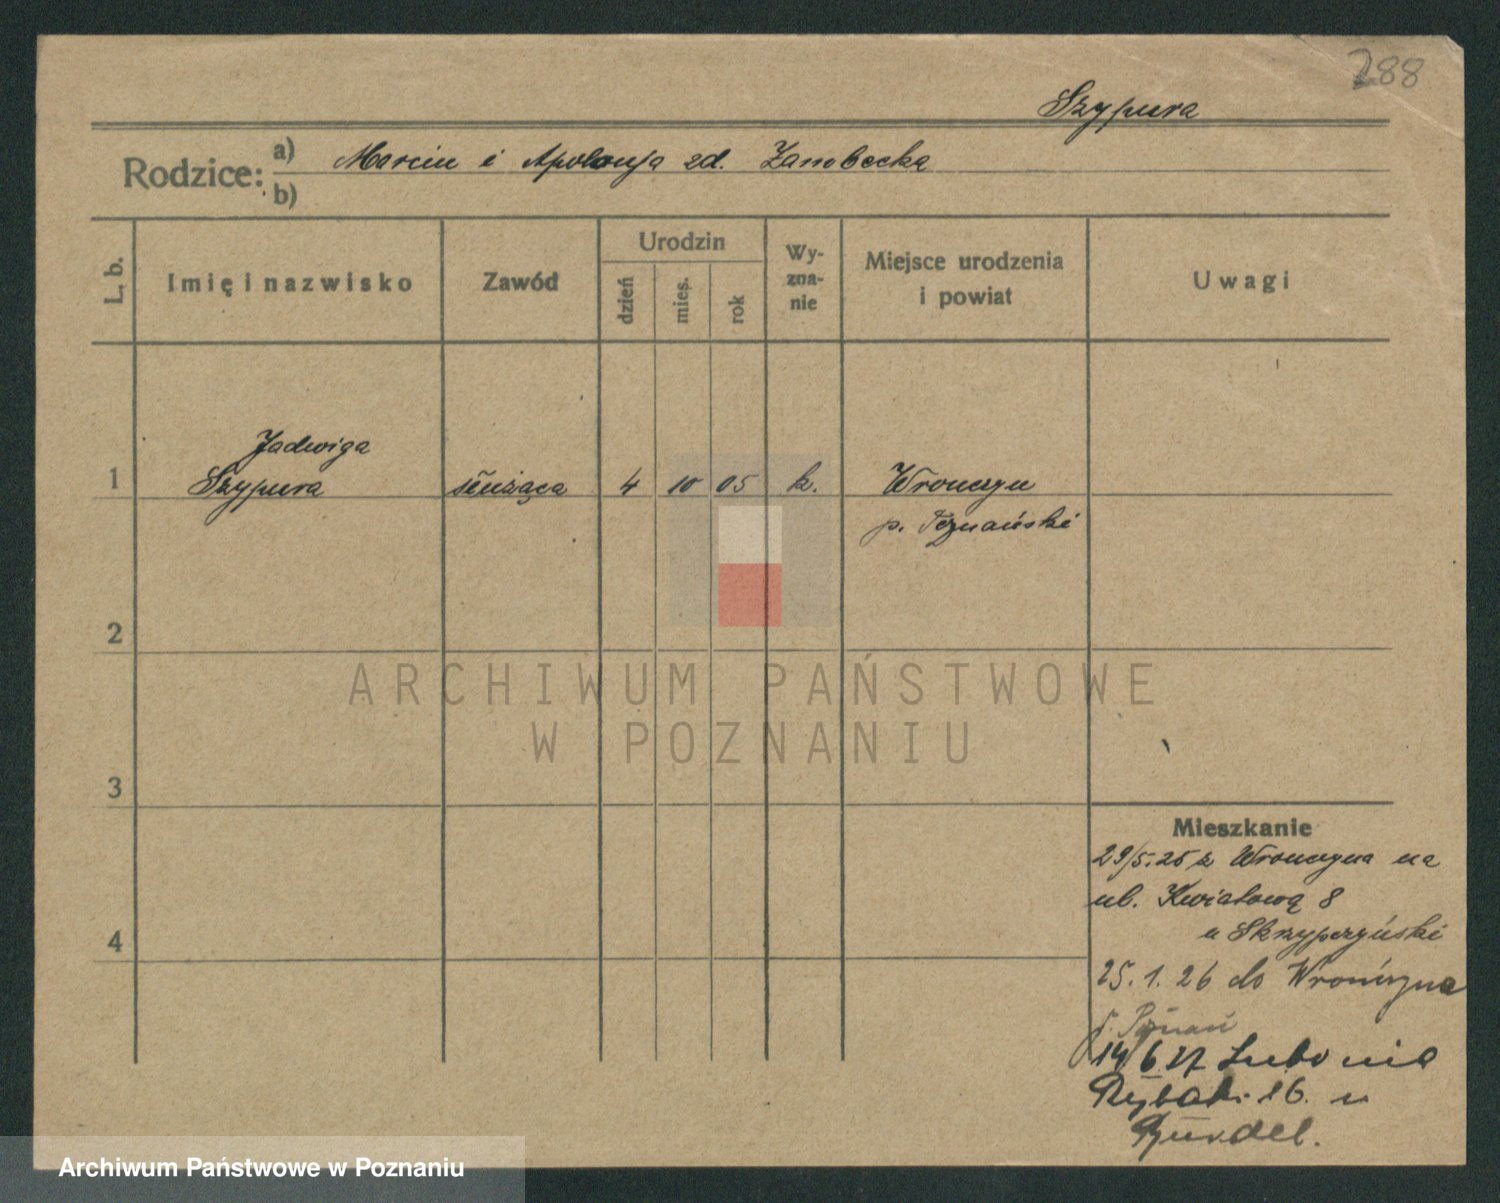 288
Szypura
Rodzice: a) Marcin i Apolonja zd. Zarobecka
b)
L. b. Imię i nazwisko Zawód Urodzin dzień mies. rok Wy-zna-nie Miejsce urodzenia i powiat Uwagi
Jadwiga
1 Szypura służąca 4 10 05 k. Wronczyn
p. Poznański
2
ARCHIWUM PAŃSTWOWE
W POZNANIU
3
Mieszkanie
29/5.25 z Wronczyna na
ul. Kwiatową 8
u Skrzypczyński
4
25.1.26 do Wronczyna
p. Poznań
14/6 27 z
Rybaki 16. u
Archiwum Państwowe w Poznaniu